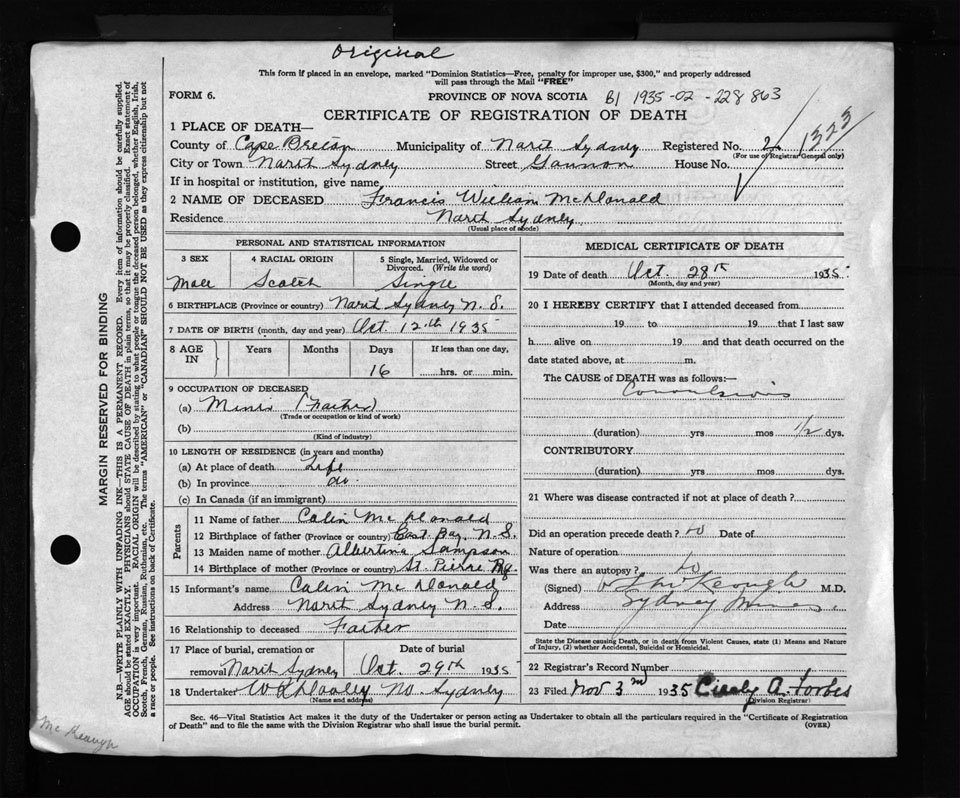 Original
This form if placed in an envelope, marked "Dominion Statistics—Free, penalty for improper use, $300," and properly addressed
will pass through the Mail "FREE"
FORM 6.
PROVINCE OF NOVA SCOTIA
1935-02-228863
CERTIFICATE OF REGISTRATION OF DEATH
1323
1 PLACE OF DEATH—
County of Cape Breton Municipality of North Sydney Registered No.
(For use of Registrar General only)
City or Town North Sydney Street Gannon House No.
If in hospital or institution, give name
2 NAME OF DECEASED Francis William McDonald
Residence North Sydney
(Usual place of abode)
PERSONAL AND STATISTICAL INFORMATION
3 SEX
4 RACIAL ORIGIN
5 Single, Married, Widowed or
Divorced. (Write the word)
Male Scotch Single
6 BIRTHPLACE (Province or country) North Sydney N.S.
7 DATE OF BIRTH (month, day and year) Oct. 12th 1935
8 AGE
IN
Years Months Days If less than one day,
16 hrs. or min.
9 OCCUPATION OF DECEASED
(a) (Father)
(Trade or occupation or kind of work)
(b)
(Kind of industry)
10 LENGTH OF RESIDENCE (in years and months)
(a) At place of death Life
(b) In province do
(c) In Canada (if an immigrant)
Parents
11 Name of father Colin McDonald
12 Birthplace of father (Province or country) East Bay, N.S.
13 Maiden name of mother Albertina Sampson
14 Birthplace of mother (Province or country) St. Pierre
15 Informant's name Colin McDonald
Address North Sydney N.S.
16 Relationship to deceased Father
17 Place of burial, cremation or Date of burial
removal North Sydney Oct. 29th 1935
18 Undertaker No. Sydney
(Name and address)
MEDICAL CERTIFICATE OF DEATH
19 Date of death Oct. 28th 1935
(Month, day and year)
20 I HEREBY CERTIFY that I attended deceased from
19 to 19 that I last saw
h alive on 19 and that death occurred on the
date stated above, at m.
The CAUSE of DEATH was as follows:—
Convulsions
(duration) yrs mos 1/2 dys.
CONTRIBUTORY
(duration) yrs mos dys.
21 Where was disease contracted if not at place of death?
Did an operation precede death? no Date of
Nature of operation
Was there an autopsy? no
(Signed) McKeough M.D.
Address Sydney Mines.
Date
State the Disease causing Death, or in death from Violent Causes, state (1) Means and Nature
of Injury, (2) whether Accidental, Suicidal or Homicidal.
22 Registrar's Record Number
23 Filed Nov 3rd 1935 A. Forbes
(Division Registrar)
Sec. 46—Vital Statistics Act makes it the duty of the Undertaker or person acting as Undertaker to obtain all the particulars required in the "Certificate of Registration
of Death" and to file the same with the Division Registrar who shall issue the burial permit. (OVER)
MARGIN RESERVED FOR BINDING
N.B.—WRITE PLAINLY WITH UNFADING INK—THIS IS A PERMANENT RECORD. Every item of information should be carefully supplied.
AGE should be stated EXACTLY. PHYSICIANS should STATE CAUSE OF DEATH in plain terms, so that it may be properly classified. Exact statement of
OCCUPATION is very important. RACIAL ORIGIN will be described by stating to what people or tongue the deceased person belonged, whether English, Irish,
Scotch, French, German, Russian, Ruthenian, etc. The terms "AMERICAN" or "CANADIAN" SHOULD NOT BE USED as they express citizenship but not
a race or people. See instructions on back of Certificate.
McKeough